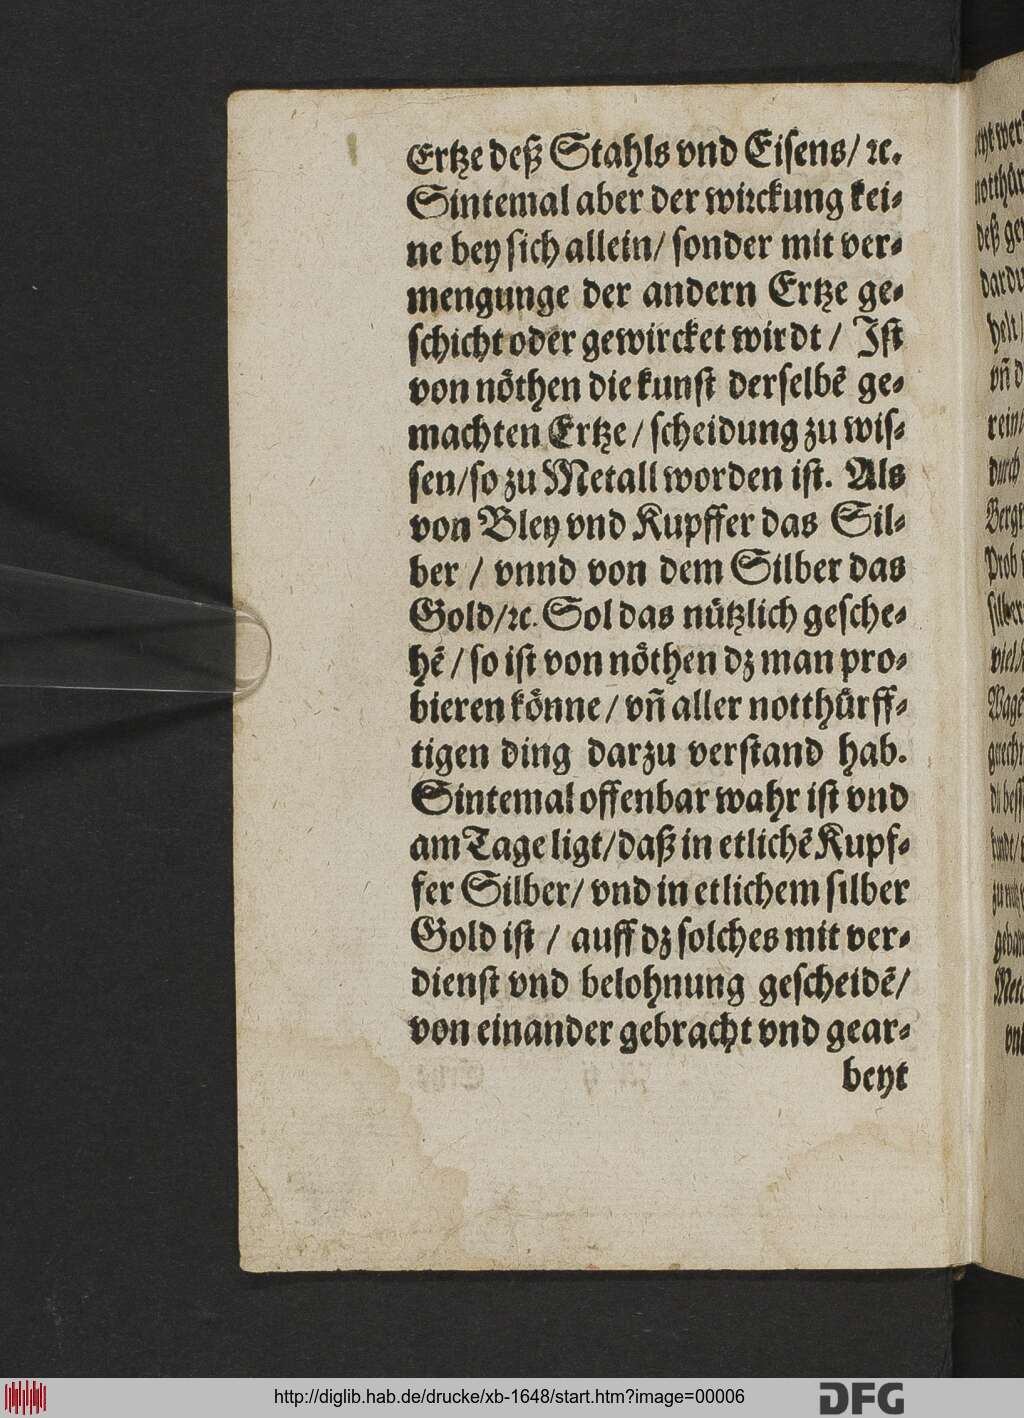 Ertze deß Stahls vnd Eisens/ ꝛc.
Sintemal aber der wirckung kei⸗
ne bey sich allein/ sonder mit ver⸗
mengunge der andern Ertze ge⸗
schicht oder gewircket wirdt / Ist
von nöthen die kunst derselbē ge⸗
machten Ertze / scheidung zu wis⸗
sen/so zu Metall worden ist. Als
von Bley vnd Kupffer das Sil⸗
ber / vnnd von dem Silber das
Gold/ꝛc. Sol das nützlich gesche⸗
hē / so ist von nöthen dz man pro⸗
bieren könne / vñ aller notthürff⸗
tigen ding darzu verstand hab.
Sintemal offenbar wahr ist vnd
am Tage ligt/daß in etlichē Kupf⸗
fer Silber/ vnd in etlichem silber
Gold ist / auff dz solches mit ver⸗
dienst vnd belohnung gescheidē/
von einander gebracht vnd gear⸗
beyt
http://diglib.hab.de/drucke/xb-1648/start.htm?image=00006
DFG